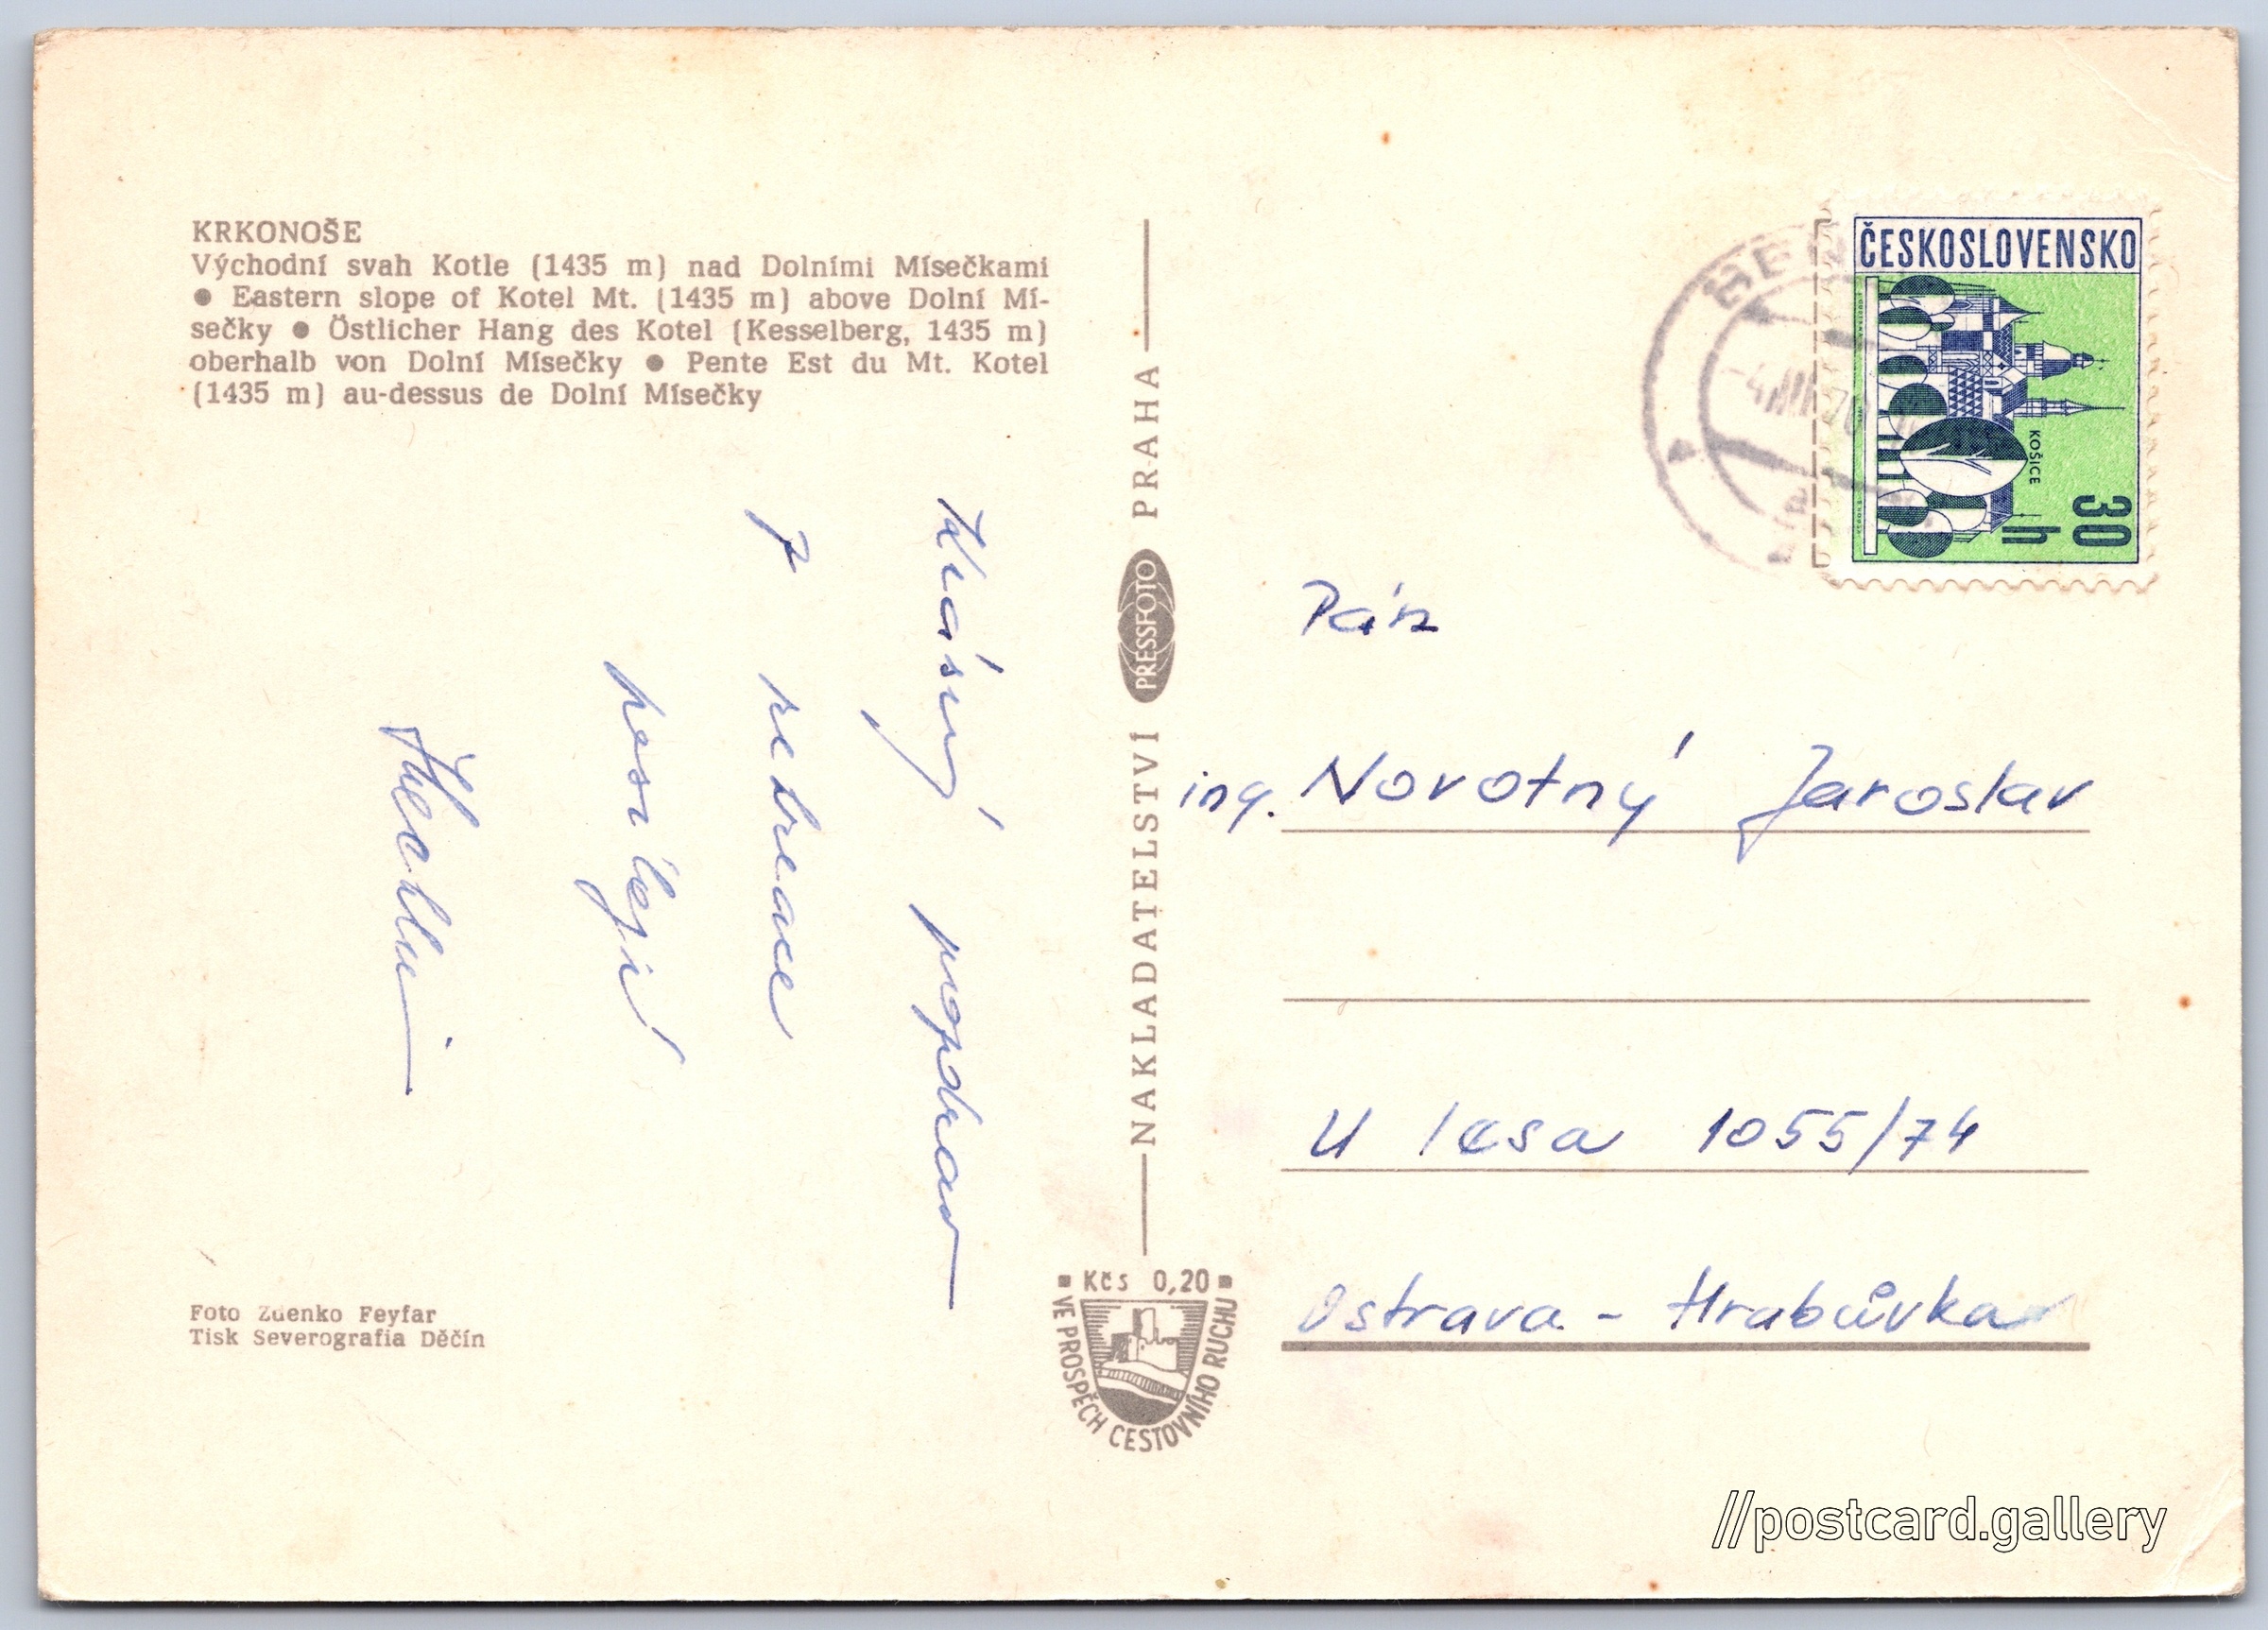 KRKONOŠE
Východní svah Kotle (1435 m) nad Dolními Mísečkami
● Eastern slope of Kotel Mt. (1435 m) above Dolní Mí-
sečky ● Östlicher Hang des Kotel (Kesselberg, 1435 m)
oberhalb von Dolní Mísečky ● Pente Est du Mt. Kotel
(1435 m) au-dessus de Dolní Mísečky
pozdrav
z rekreace
posílají
Foto Zdenko Feyfar
Tisk Severografia Děčín
NAKLADATELSTVÍ PRESSFOTO PRAHA
Kčs 0,20
VE PROSPĚCH CESTOVNÍHO RUCHU
ČESKOSLOVENSKO
KOŠICE
30 h
Pán
ing. Novotný Jaroslav
U lesa 1055/74
Ostrava - Hrabůvka
//postcard.gallery